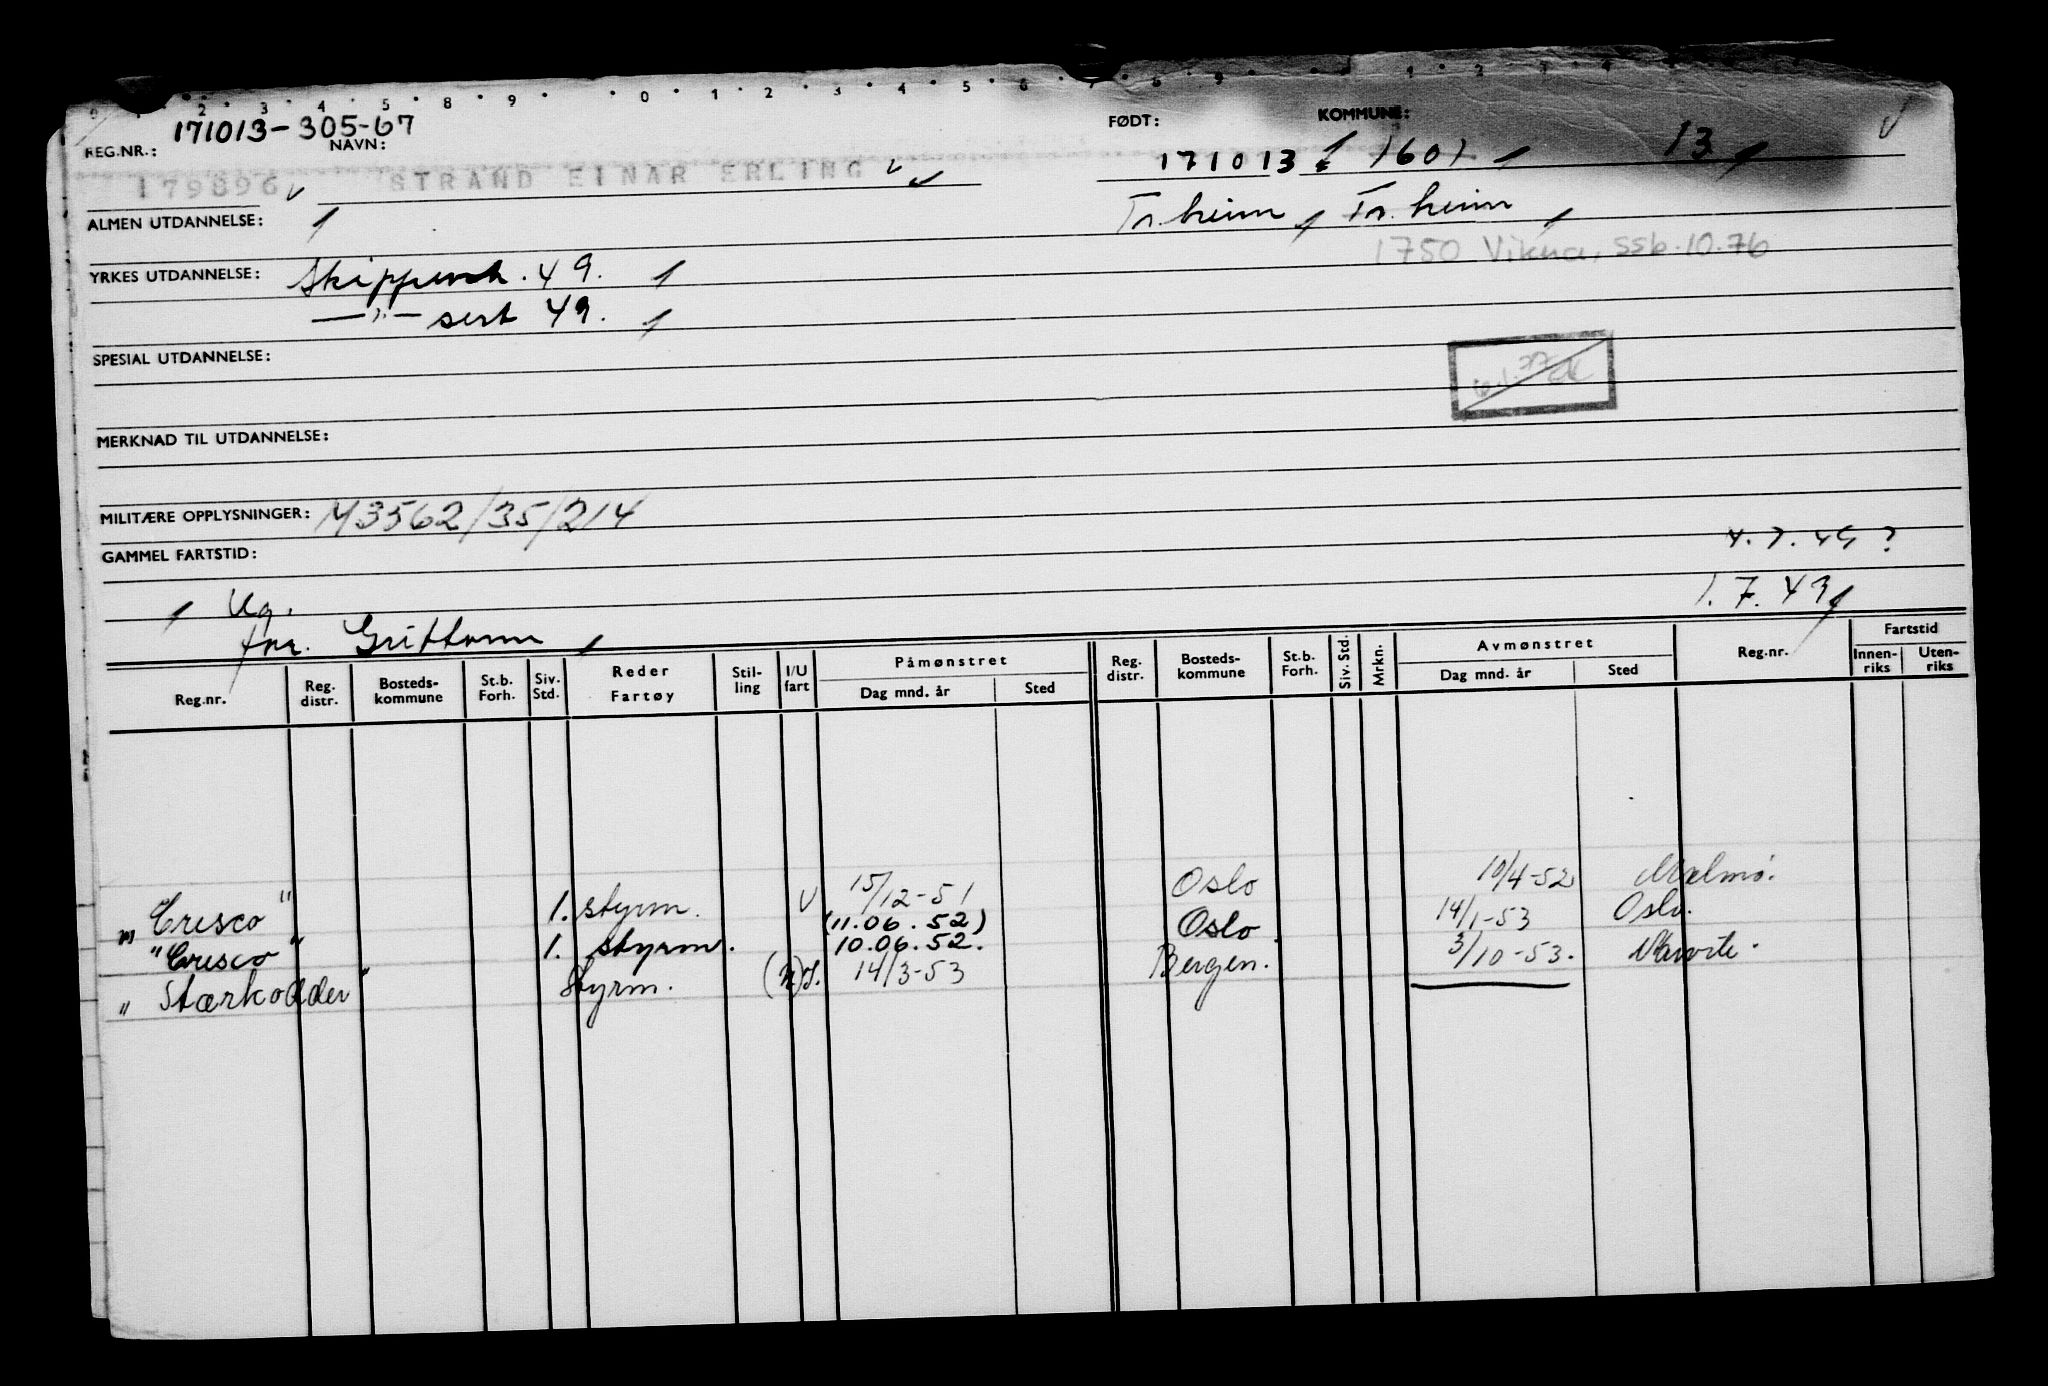 REG.NR.: 171013-305-67 NAVN: FØDT: KOMMUNE:
179896 STRAND EINAR ERLING 171013 1601 13
ALMEN UTDANNELSE: Tr.heim, Tr.heim
1750 Vikna, ssb.10.76
YRKES UTDANNELSE: Skippersk. 49.
—"— sert 49.
SPESIAL UTDANNELSE:
MERKNAD TIL UTDANNELSE:
MILITÆRE OPPLYSNINGER: M3562/35/214
GAMMEL FARTSTID:
Ug. 1.7.43
Reg.nr. Reg. distr. Bosteds-kommune St.b. Forh. Siv. Std. Reder Fartøy Stil-ling I/U fart Påmønstret Dag mnd. år Sted Reg. distr. Bosteds-kommune St.b. Forh. Siv. Std. Mrkn. Avmønstret Dag mnd. år Sted Reg.nr. Fartstid Innen-riks Uten-riks
"Cresco" 1. styrm. U 15/12-51 Oslo 10/4-52 Malmö.
(11.06.52)
"Cresco" 1. styrm. 10.06.52. Oslo 14/1-53 Oslo.
"Stærkodder" Styrm. 14/3-53 Bergen. 3/10-53.